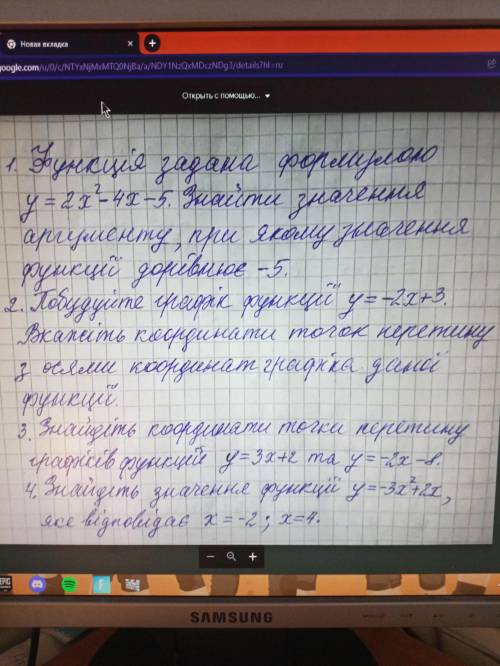 Новая вкладка
google.com/u/0/c/NTYxNjMxMTQ0NjBa/a/NDY1NzQxMDczNDg3/details?hl=ru
Открыть с помощью...
1. Функція задана формулою
y = 2x² - 4x - 5. Знайти значення
аргументу, при якому значення
функції дорівнює -5.
2. Побудуйте графік функції y = -2x + 3.
Вкажіть координати точок перетину
з осями координат графіка даної
функції.
3. Знайдіть координати точки перетину
графіків функцій y = 3x + 2 та y = -2x - 8.
4. Знайдіть значення функції y = -3x² + 2x,
яке відповідає x = -2; x = 4.
EPIC
SAMSUNG